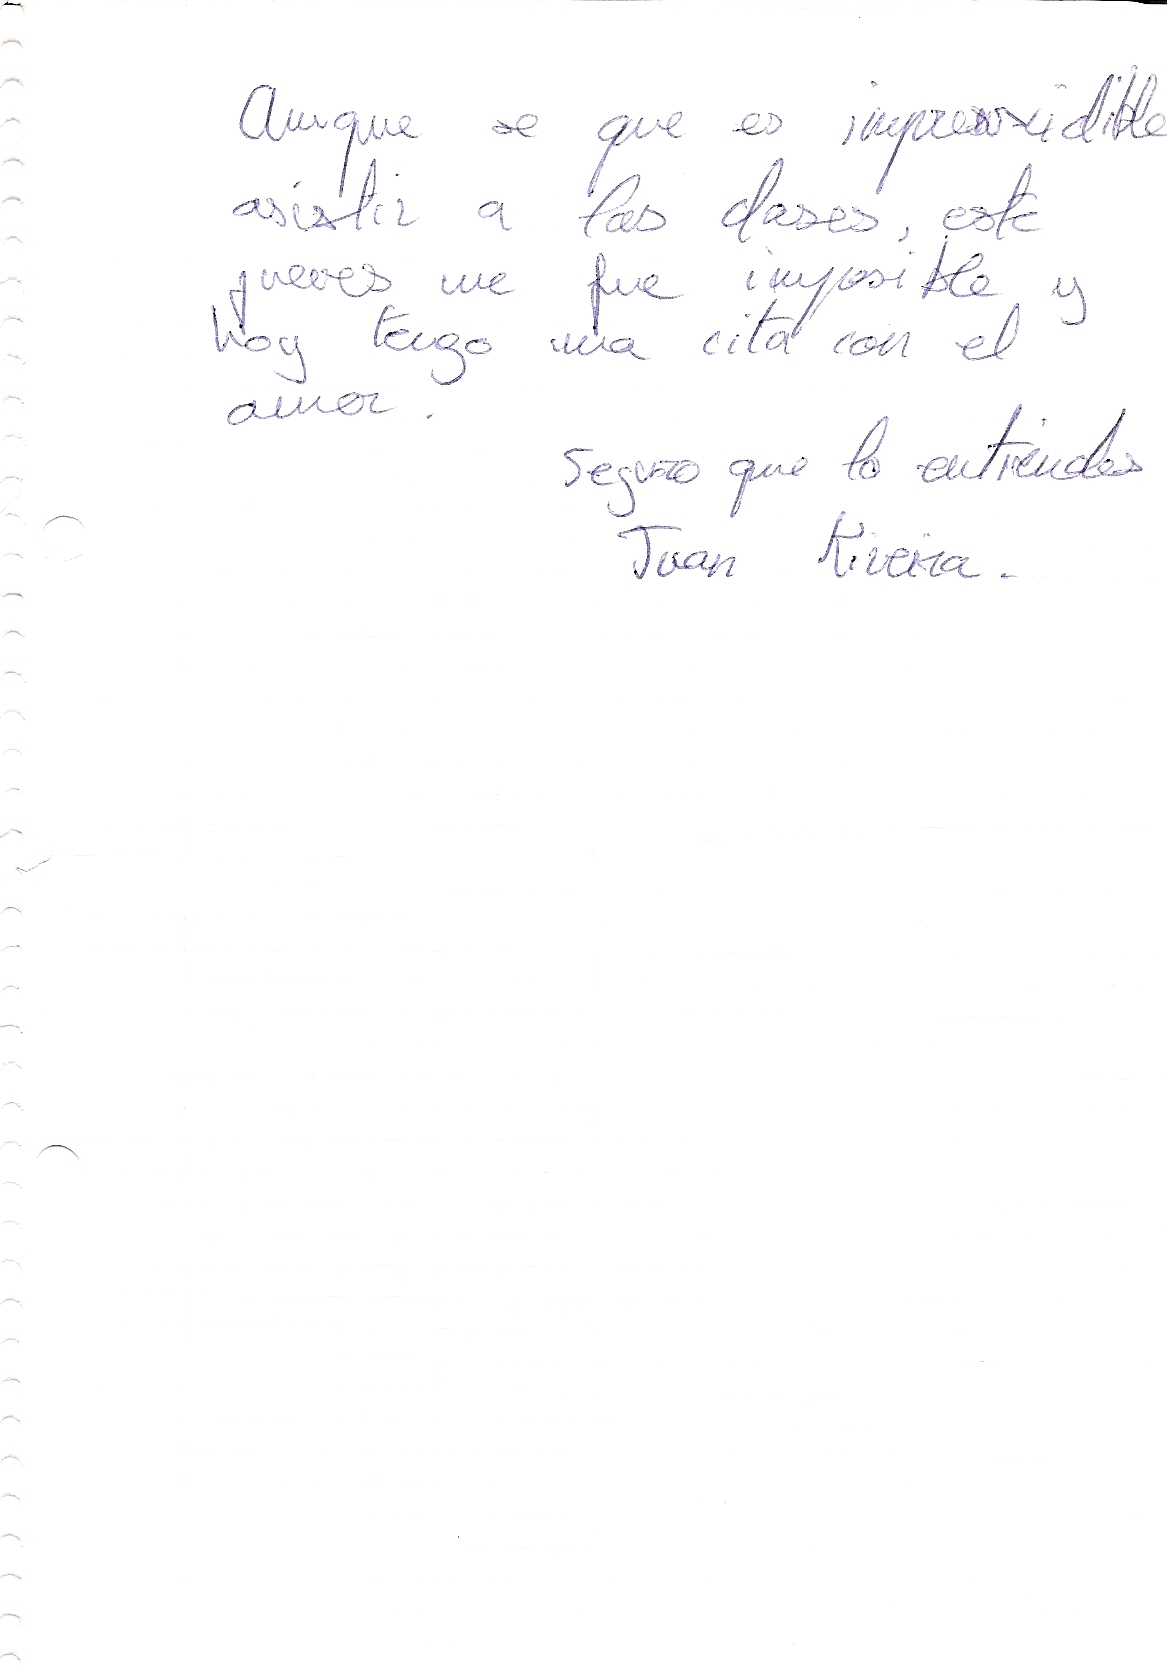 Aunque se que es imprescidible
asistir a las clases, este
jueves me fue imposible y
hoy tengo una cita con el
amor.
Seguro que lo entiendes
Juan Riveira.